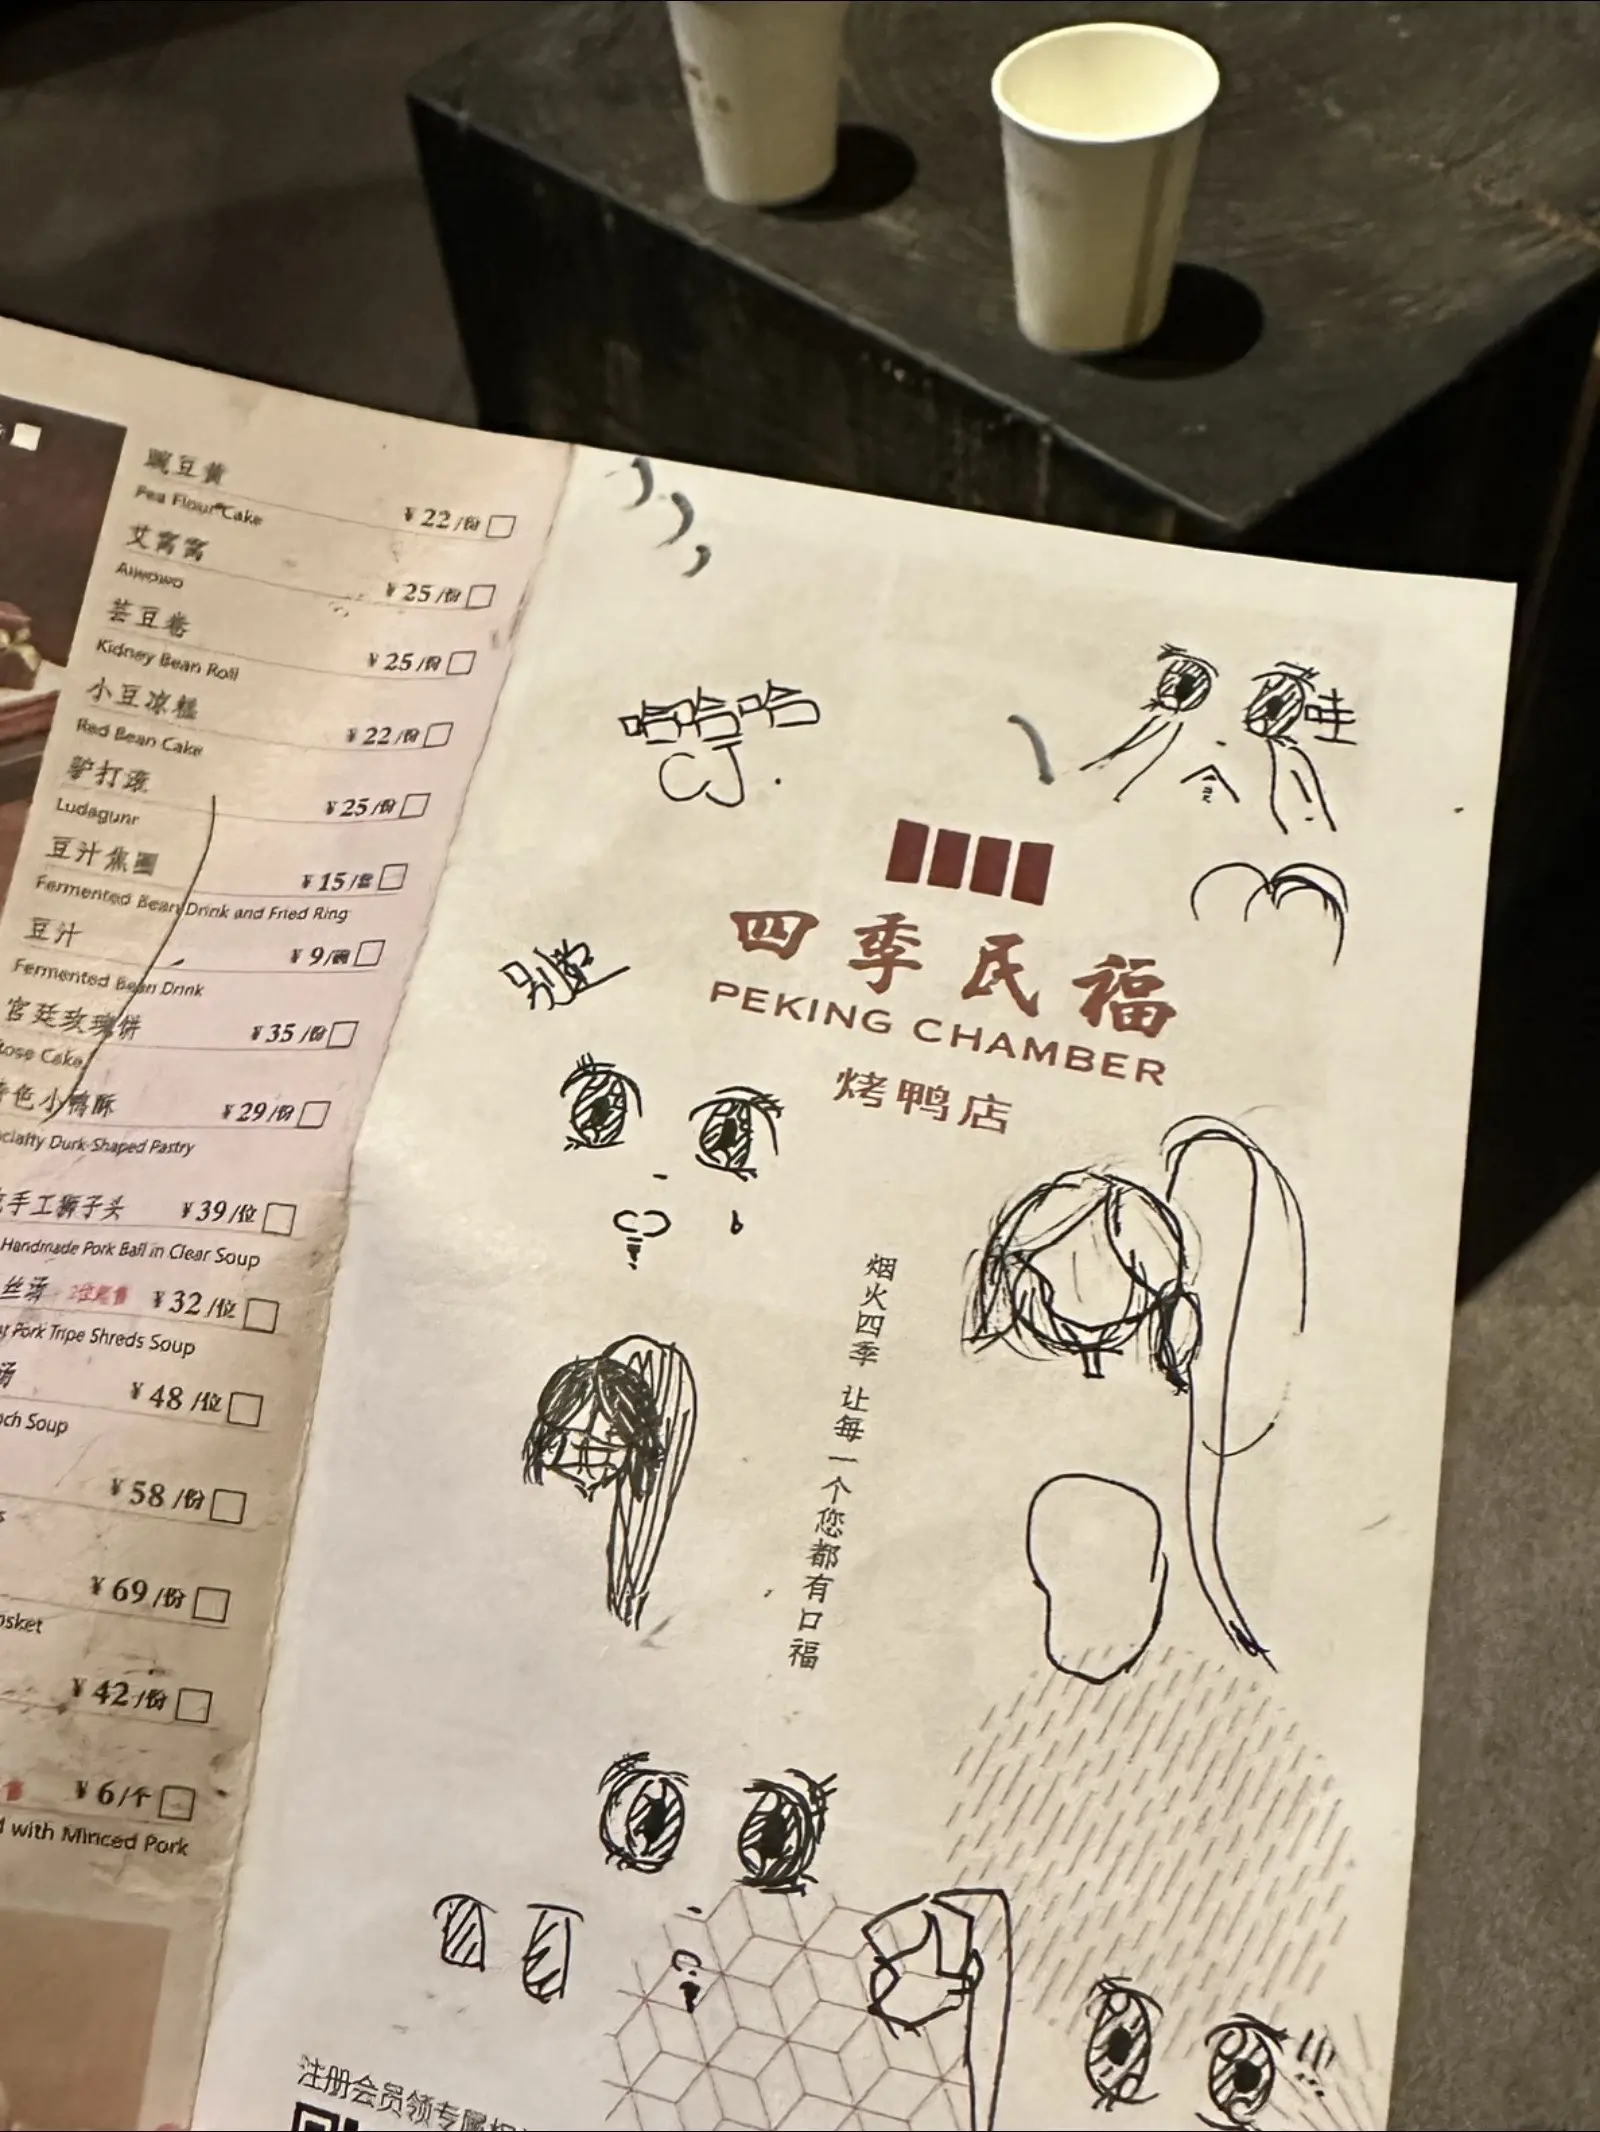 豌豆黄
¥22/份
Pea Flour Cake
艾窝窝
¥25/份
Aiwowo
芸豆卷
¥25/份
Kidney Bean Roll
小豆凉糕
¥22/份
Red Bean Cake
驴打滚
¥25/份
Ludagunr
豆汁焦圈
¥15/套
Fermented Bean Drink and Fried Ring
豆汁
¥9/碗
Fermented Bean Drink
宫廷玫瑰饼
¥35/份
Rose Cake
色小鸭酥
¥29/份
Durk-Shaped Pastry
手工狮子头
¥39/位
Handmade Pork Ball in Clear Soup
丝汤
¥32/位
Pork Tripe Shreds Soup
汤
¥48/位
Soup
¥58/份
¥69/份
¥42/份
¥6/个
with Minced Pork
哈哈哈
哇
四季民福
PEKING CHAMBER
烤鸭店
烟火四季 让每一个您都有口福
注册会员领专属